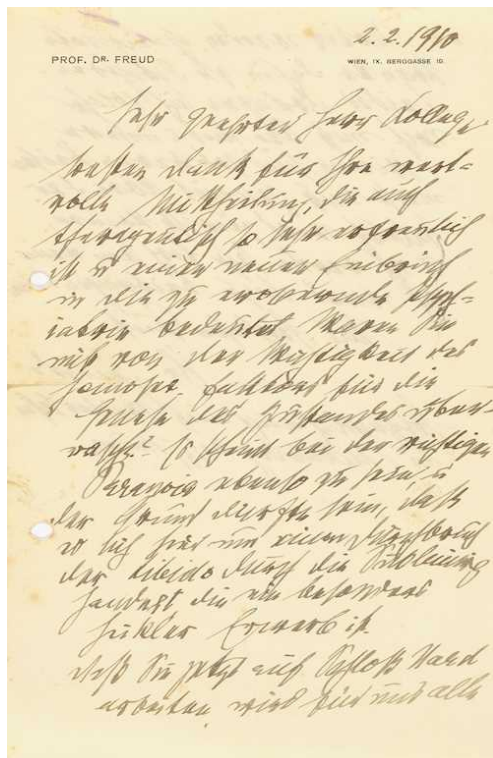 2.2.1910
PROF. DR. FREUD
WIEN, IX. BERGGASSE 19.
Sehr geehrter Herr Kollege
besten Dank für Ihre wert-
volle Mittheilung, die auch
therapeutisch so sehr erfreulich
ist u einen neuen Einbruch
in die zu erobernde Psych-
iatrie bedeutet. Waren Sie
nicht von der Wichtigkeit des
homosex. Faktors für die
Genese des Zustandes über-
rascht? Es scheint bei der richtigen
Paranoia ebenso zu sein, u
der Grund dürfte sein, daß
es sich hier um einen Durchbruch
der Libido durch die Sublimirung
handelt die ein besonders
heikler Erwerb ist.
Daß Sie jetzt auf Schloß
arbeiten, wird für uns alle